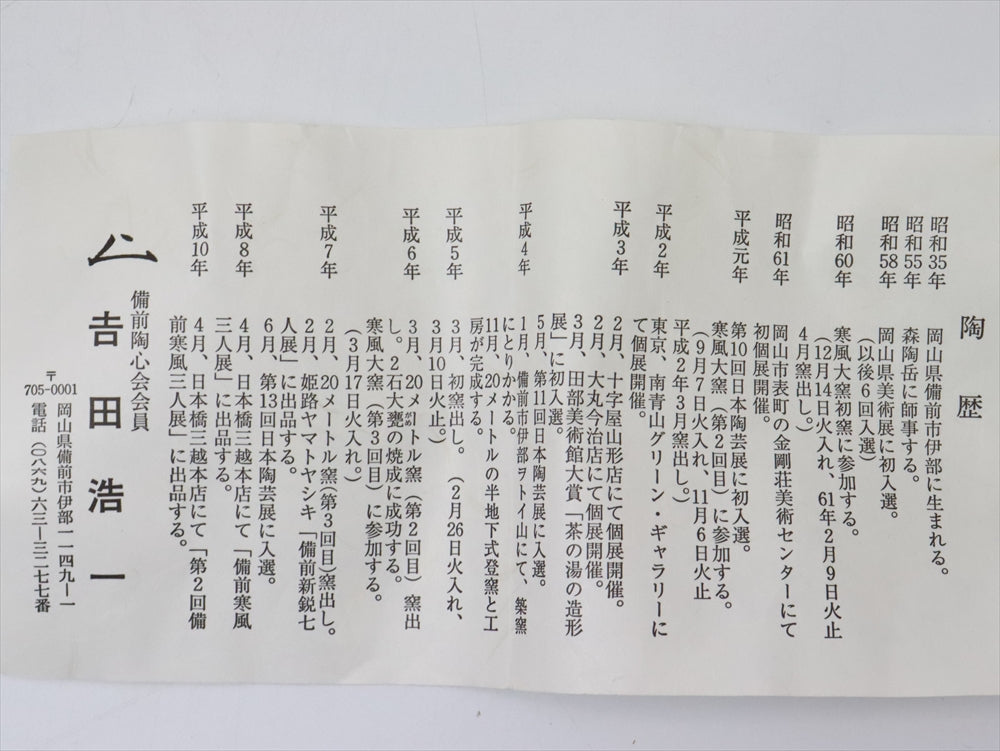 陶歴
昭和35年　岡山県備前市伊部に生まれる。
昭和55年　森陶岳に師事する。
昭和58年　岡山県美術展に初入選。
（以後6回入選）
昭和60年　寒風大窯初窯に参加する。
（12月14日火入れ、61年2月9日火止
4月窯出し。）
昭和61年　岡山市表町の金剛荘美術センターにて
初個展開催。
平成元年　第10回日本陶芸展に初入選。
寒風大窯（第2回目）に参加する。
（9月7日火入れ、11月6日火止
平成2年3月窯出し。）
平成2年　東京、南青山グリーン・ギャラリーに
て個展開催。
平成3年　2月、十字屋山形店にて個展開催。
2月、大丸今治店にて個展開催。
3月、田部美術館大賞「茶の湯の造形
展」に初入選。
5月、第11回日本陶芸展に入選。
平成4年　1月、備前市伊部ヲトイ山にて、築窯
にとりかかる。
11月、20メートルの半地下式登窯と工
房が完成する。
平成5年　3月、初窯出し。（2月26日火入れ、
3月10日火止。）
平成6年　3月、20㍍トル窯（第2回目）窯出
し。2石大甕の焼成に成功する。
寒風大窯（第3回目）に参加する。
（3月17日火入れ。）
平成7年　2月、20メートル窯（第3回目）窯出し。
2月、姫路ヤマトヤシキ「備前新鋭七
人展」に出品する。
6月、第13回日本陶芸展に入選。
平成8年　4月、日本橋三越本店にて「備前寒風
三人展」に出品する。
平成10年　4月、日本橋三越本店にて「第2回備
前寒風三人展」に出品する。
備前陶心会会員
𠮷田浩一
〒705-0001　岡山県備前市伊部一一四九ー一
電話（〇八六九）六三ー三二七七番